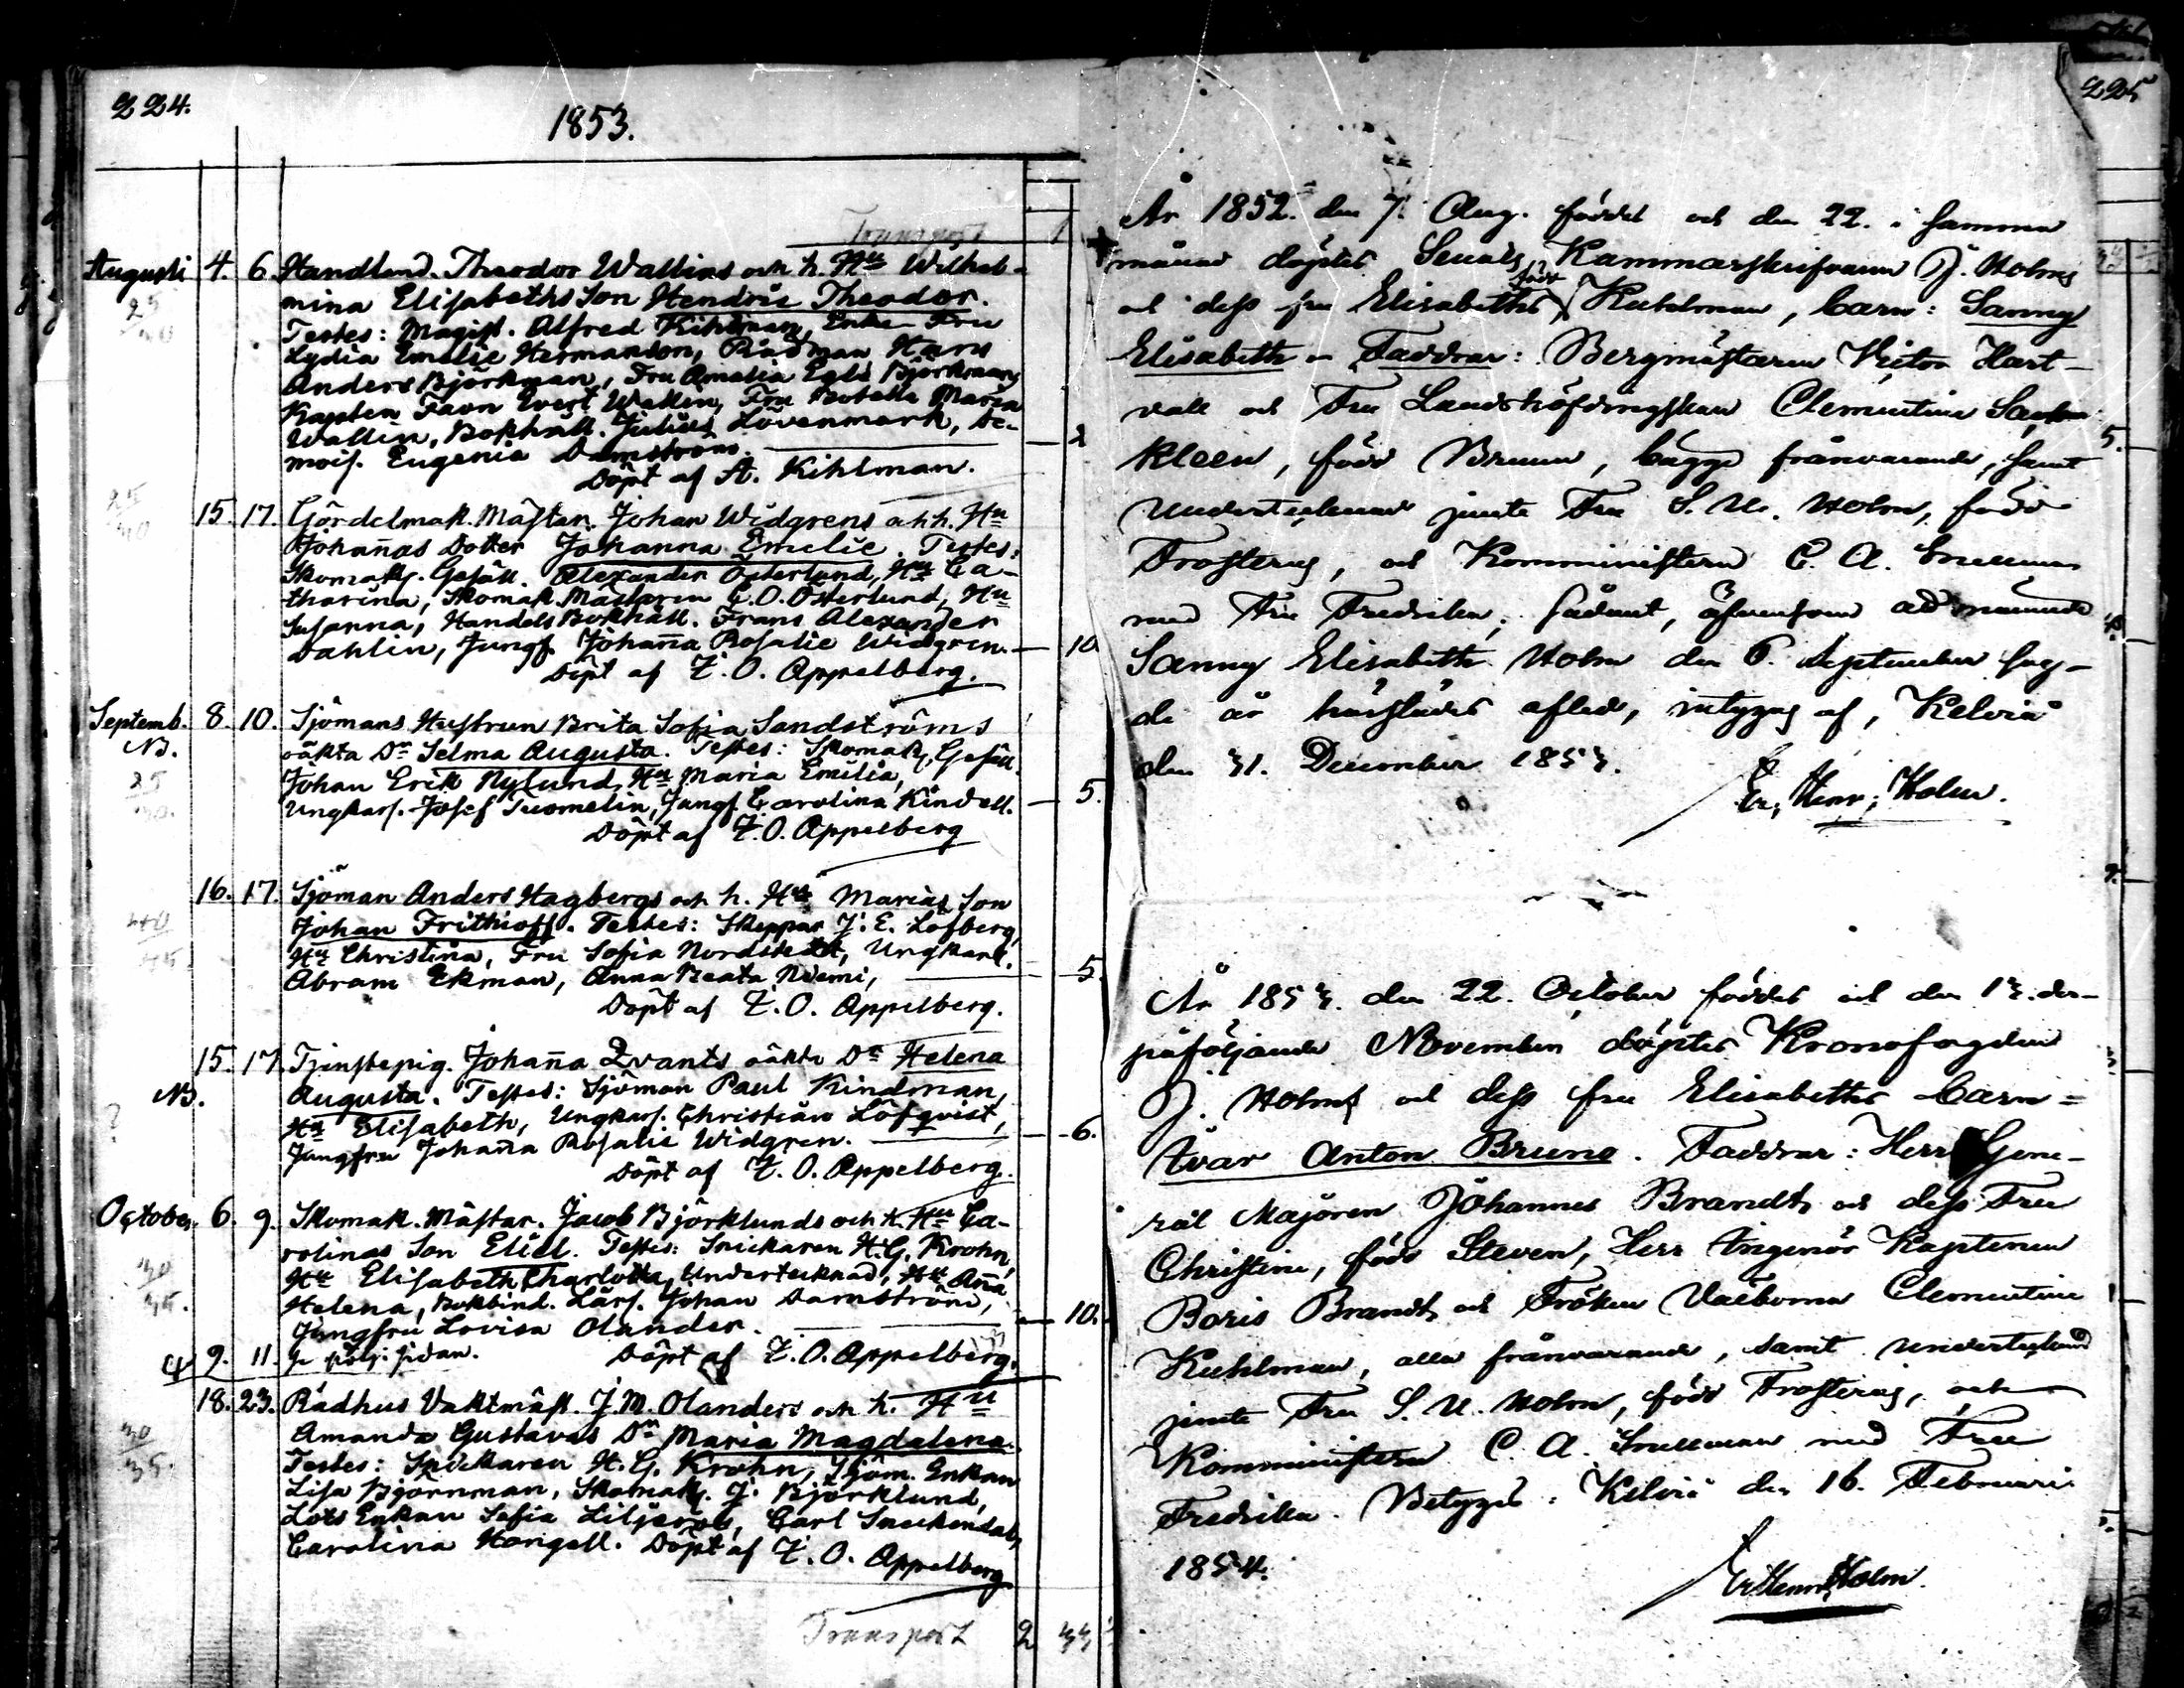 224.
1853.
Transport 1
Augusti 4. 6. Handlend. Theodor Wallins och h. Hu Wilhel-
mina Elisabeths Son Hendric Theodor.
Testes: Magist. Alfred Kihlman, Enke Fru
Lydia Emelie Hermanson, Rådman Hans
Anders Björkman, Fru Amalia Björkman,
Kapten Evert Wallin, Fru Maria
Wallin, Bokhåll. Julius Lövenmark, De-
mois. Eugenie Damström. 2
Döpt af A. Kihlman.
25
30
15. 17. Gördelmak. Mästar. Johan Widgrens och h. Hu
Johannas Dotter Johanna Emelie. Testes:
Skomak. Gesäll. Alexander Österlund, Hu Ca-
tharina, Skomak. Mästaren C. O. Österlund, Hu
Susanna, Handels Bokhåll. Frans Alexander
Dahlin, Jungf. Johanna Rosalie Widgren. 10.
Döpt af Z. O. Appelberg.
Septemb. 8. 10. Sjömans Hustrun Brita Sofia Sandströms
NB. oäkta Dr Selma Augusta. Testes: Skomak. Gesäll.
25 Johan Erik Nylund, Hu Maria Emilia,
30. Ungkarl. Josef Tuomelin, Jungf. Carolina Kindell. 5.
Döpt af Z. O. Appelberg
16. 17. Sjöman Anders Hagbergs och h. Hu Marias Son
Johan Frithioff. Testes: Skeppar J. E. Löfberg,
Hu Christina, Fru Sofia Nordstedt, Ungkarl.
Abram Ekman, Anna Beata Niemi, 5.
Döpt af Z. O. Appelberg.
40
45
15. 17. Tjenstepig. Johanna Qvants oäkta Dr Helena
NB. Augusta. Testes: Sjöman Paul Kindman,
? Hu Elisabeth, Ungkarl. Christian Löfqvist,
Jungfru Johanna Rosalie Widgren. 6.
Döpt af Z. O. Appelberg.
October. 6. 9. Skomak. Mästar. Jacob Björklunds och h. Hu Ca-
rolinas Son Eliel. Testes: Snickaren H. G. Krohn,
Hu Elisabeth Charlotta, Undertecknad, Hu Anna
Helena, Bokbind. Lärl. Johan Damström,
Jungfru Lovisa Olander. 10.
9. 11. Se följ. sidan. Döpt af Z. O. Appelberg.
18. 23. Rådhus Vaktmäst. J. M. Olanders och h. Hu
Amanda Gustavas Dr Maria Magdalena.
Testes: Snickaren H. G. Krohn, Sjöm. Enkan
Lisa Björnman, Skomak. J. Björklund,
Lots Enkan Sofia Liljeros, Carl Sneckendahl,
Carolina Hongell. Döpt af Z. O. Appelberg
30
35.
Transport 2 33
225
År 1852. den 7. Aug. föddes och den 22. i samma
månad döptes Senats Kammarskrifvaren J. Holms
och dess fru Elisabeths född Kuhlman, barn: Sanny
Elisabeth. Faddrar: Bergmästaren Victor Hart-
vall och Fru Landshöfdingskan Clementine
kleen, född Bruun, bägge frånvarande, samt
Undertecknad jemte Fru S. U. Holm, född
Frosterus, och Komministern C. A. Snellman
med Fru Fredrika; sådant, äfvensom att nämnde
Sanny Elisabeth Holm den 6. September sag-
de år härstädes afled, intygas af, Kelviå
den 31. December 1853.
Er. Henr. Holm.
År 1853. den 22. October föddes och den 13. der-
påföljande November döptes Kronofogden
J. Holms och dess fru Elisabeths barn =
Ivar Anton Bruno. Faddrar: Herr Gene-
ral Majoren Johannes Brandt och dess Fru
Christine, född Steven, Herr Ingeniör Kaptenen
Boris Brandt och Fröken Valborna Clementine
Kuhlman, alla frånvarande, samt Undertecknad
jemte Fru S. U. Holm, född Frosterus, och
Komministern C. A. Snellman med Fru
Fredrika. Betygas: Kelviå den 16. Februari
1854.
Er. Henr. Holm.